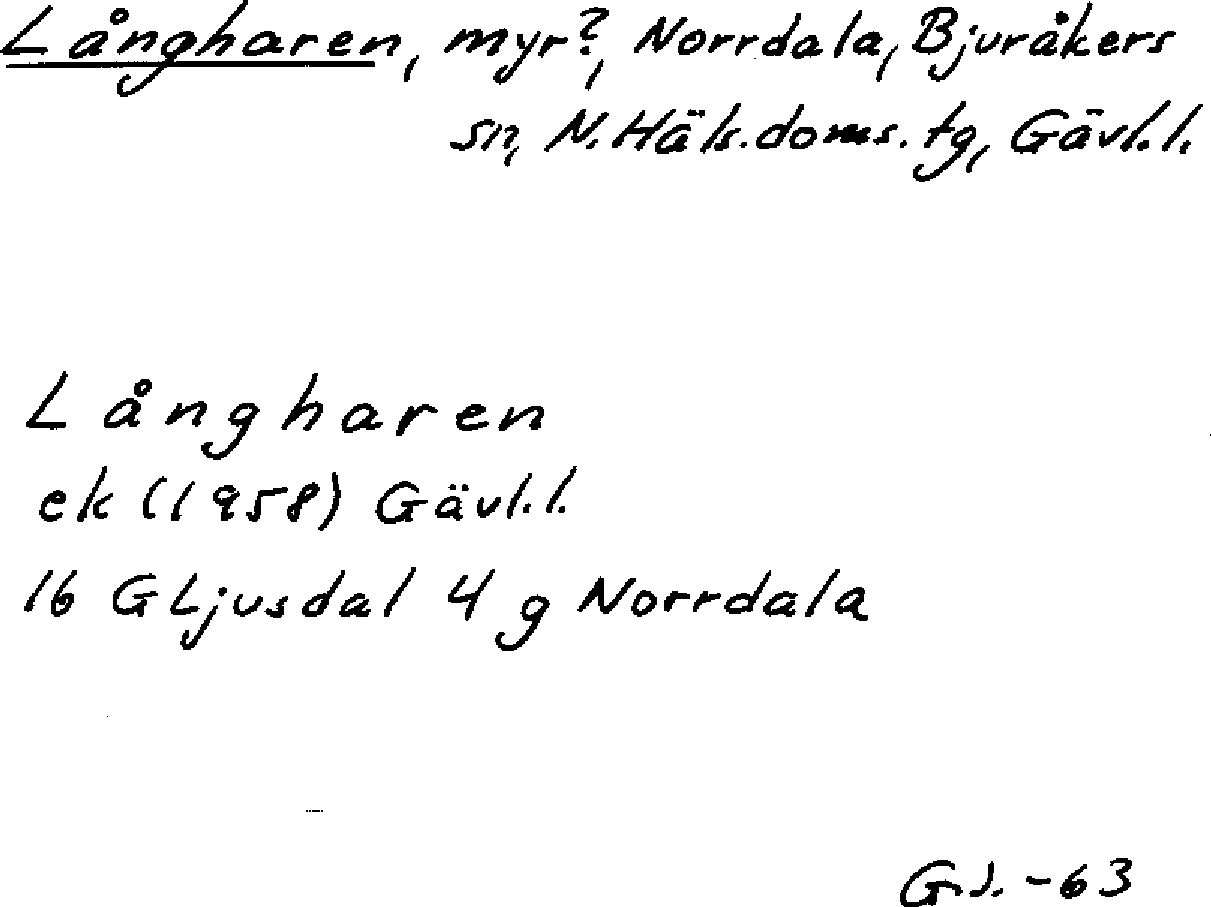 Långharen, myr?, Norrdala, Bjuråkers
sn, N. Häls. doms. tg, Gävl. l.
Långharen
ek (1958) Gävl. l.
16 G Ljusdal 4 g Norrdala
G.J. -63